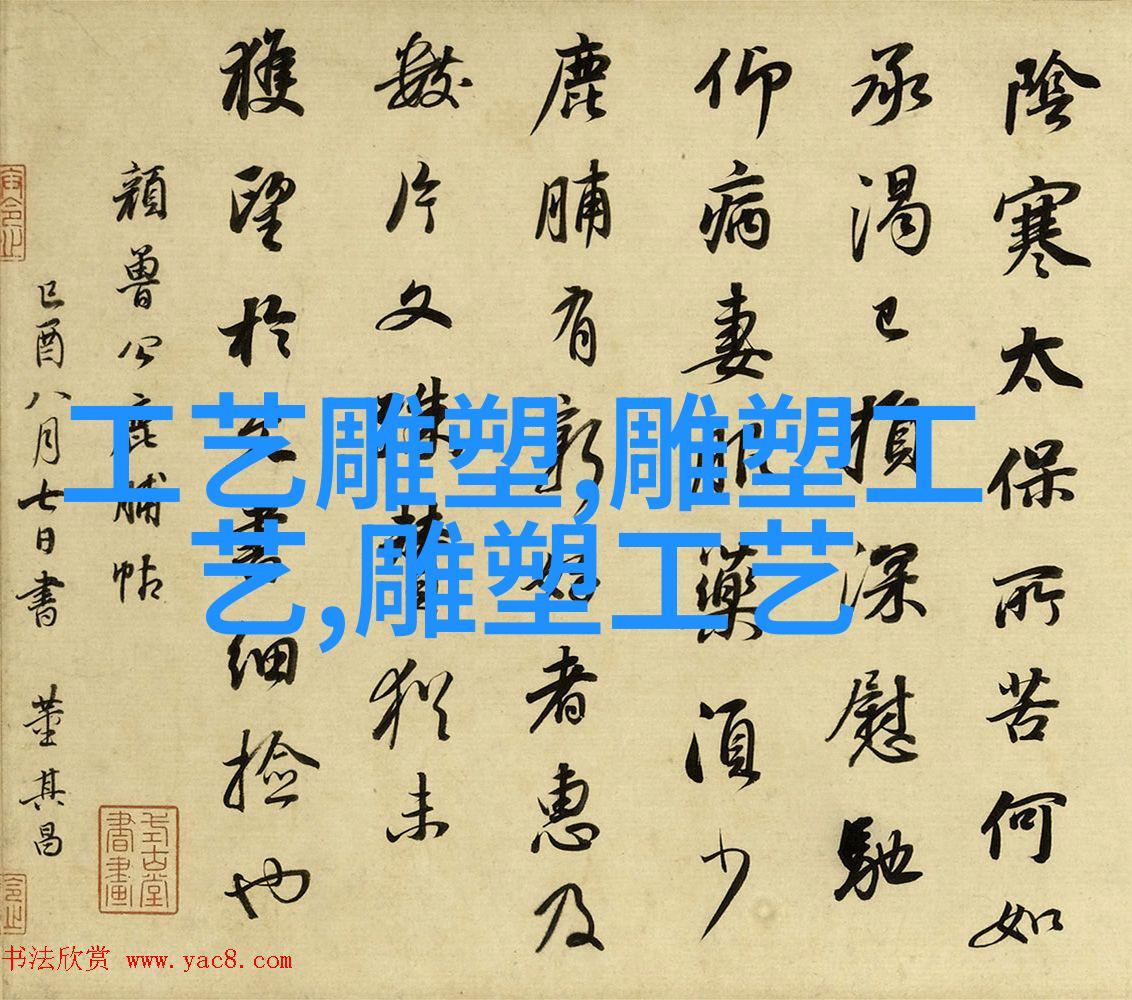 陰寒太保所苦何如
承渴已損深慰馳
仰病妻服藥須少
鹿脯有新好者惠及
數片文殊猶未
獲望於書細撿也
顏魯公鹿脯帖
己酉八月七日書 董其昌
工艺雕塑,雕塑工
艺,雕塑工艺
书法欣赏 www.yac8.com